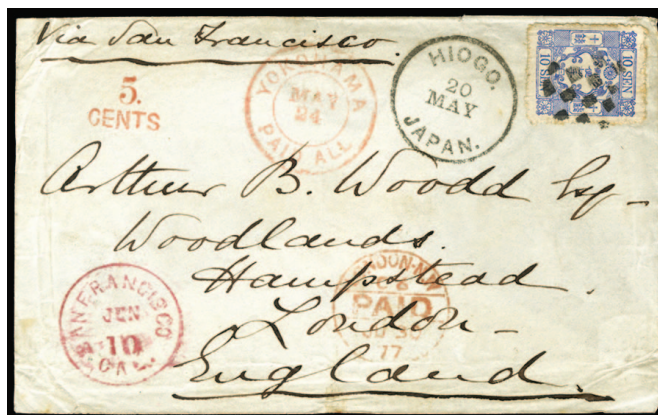 Via San Francisco.
5.
CENTS
YOKOHAMA
MAY
24
PAID ALL
HIOGO.
20
MAY
JAPAN.
10 SEN
10 SEN
Arthur B. Woodd Esq
Woodlands.
Hampstead.
London
England.
SAN FRANCISCO
JUN
10
CAL.
PAID
77